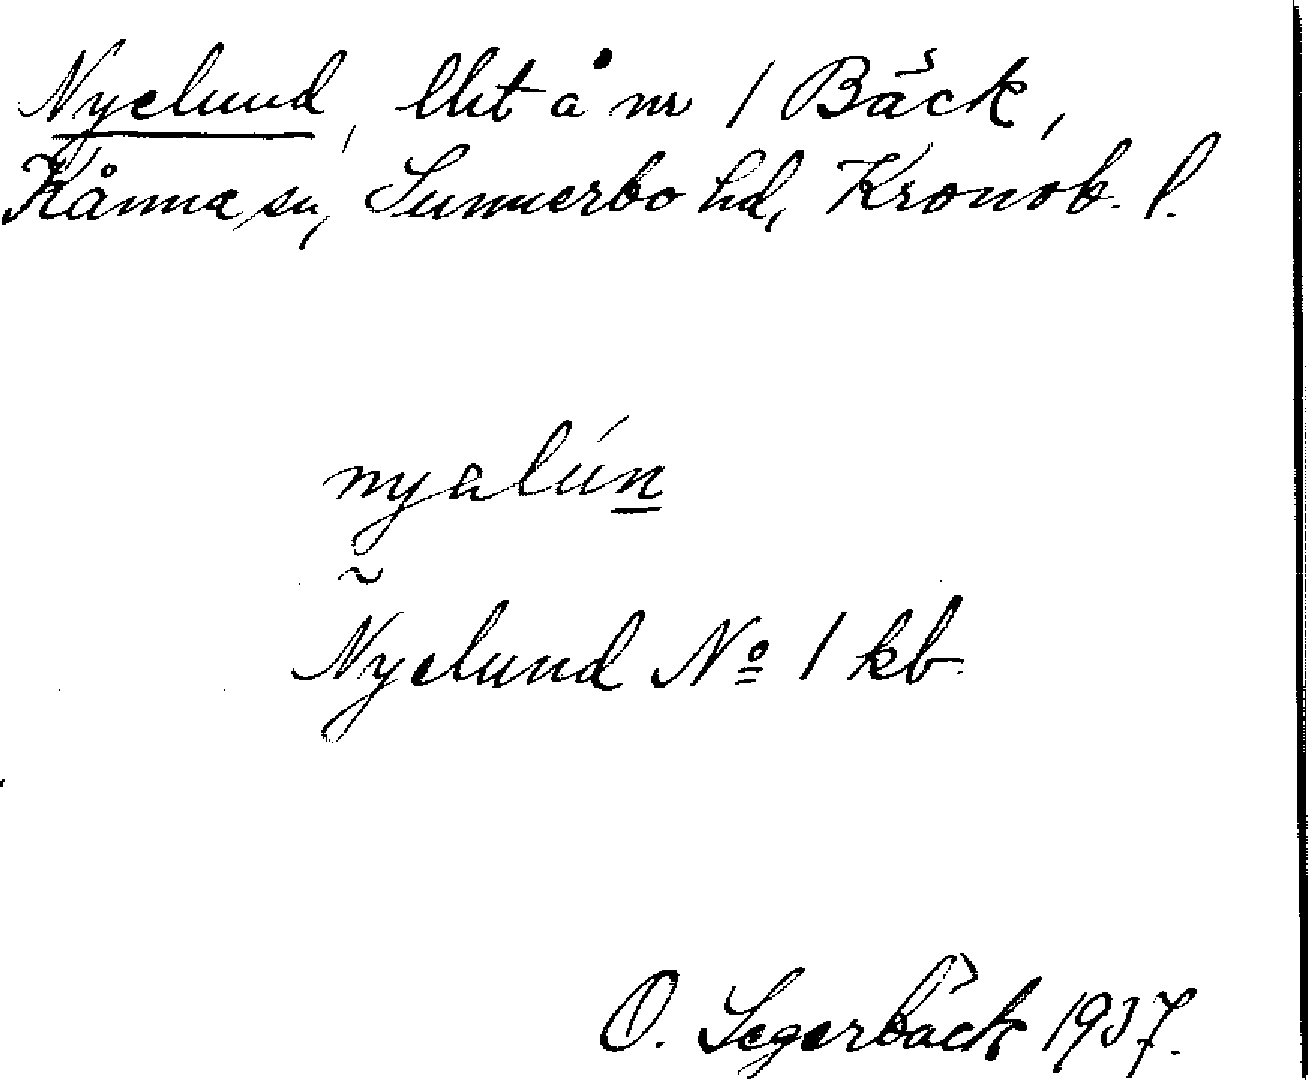 Nyelund, lht å nr 1 Bäck,
Kånna sn, Sunnerbo hd, Kronob. l.
nyalún
Nyelund Nº 1 kb
O. Segerbäck 1937.